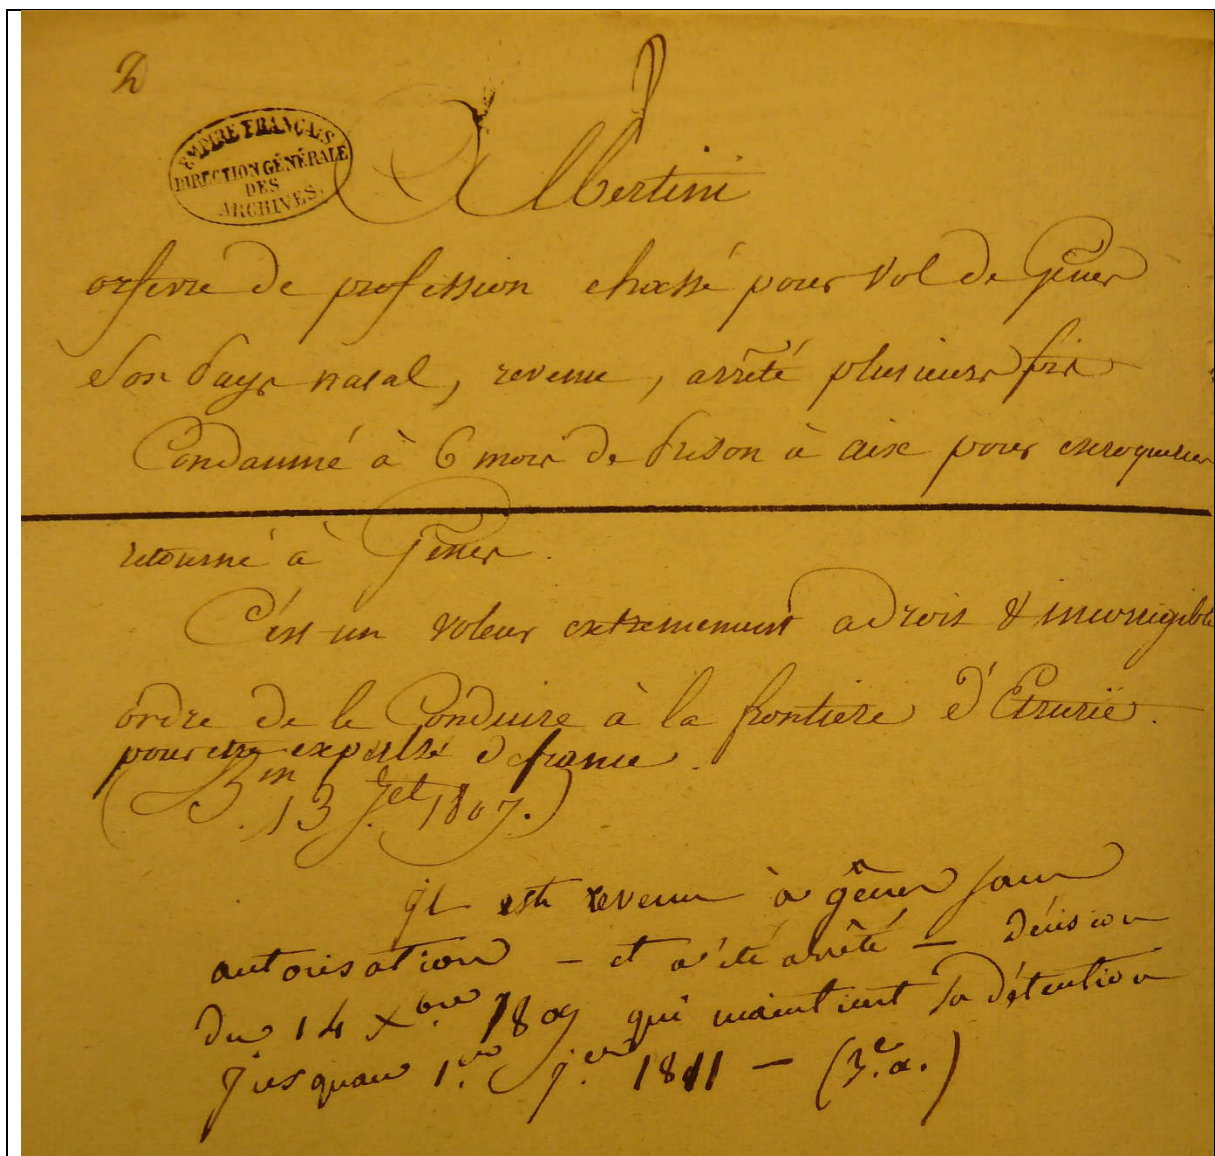 2
EMPIRE FRANÇAIS
DIRECTION GÉNÉRALE
DES
ARCHIVES.
Albertini
orfevre de profession chassé pour vol de Gênes
Son Pays natal, revenu, arrêté plusieurs fois
Condamné à 6 mois de Prison à aix pour escroqueries
retourné à Gênes.
C'est un voleur extremement adroit & incorrigible
ordre de le Conduire à la frontiere d'Etrurie.
pour etre expulsé de france.
(Bin 13 Jet 1807.)
il est revenu à gênes sans
autorisation – et a été arrêté – décision
du 14 Xbre 1809 qui maintient sa détention
jusquau 1.er j.er 1811 – (3.e a.)